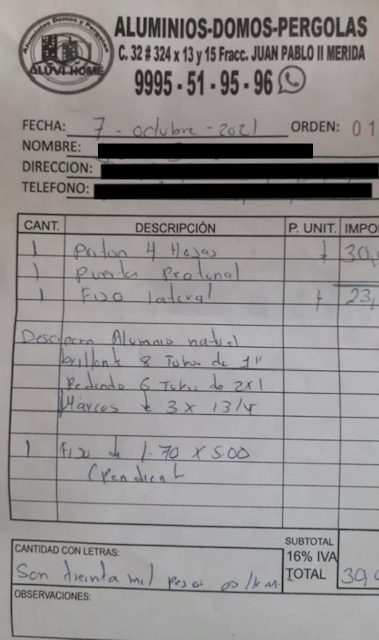 Aluminios Domos y Pergolas
ALUVI HOME
ALUMINIOS-DOMOS-PERGOLAS
C. 32 # 324 x 13 y 15 Fracc. JUAN PABLO II MERIDA
9995 - 51 - 95 - 96
FECHA: 7 - octubre - 2021 ORDEN: 01
NOMBRE:
DIRECCION:
TELEFONO:
CANT. DESCRIPCIÓN P. UNIT. IMPO
1 4 Hojas 30,
1 puerta
1 Fijo lateral 23,
Aluminio
brillante 8 Tubos de 1"
Redondo 6 Tubos de 2x1
Marcos de 3 x 1 3/4
1 Fijo de 1.70 X 5.00
(Pendient
CANTIDAD CON LETRAS:
Son treinta mil pesos 00/
SUBTOTAL
16% IVA
TOTAL 30,
OBSERVACIONES: